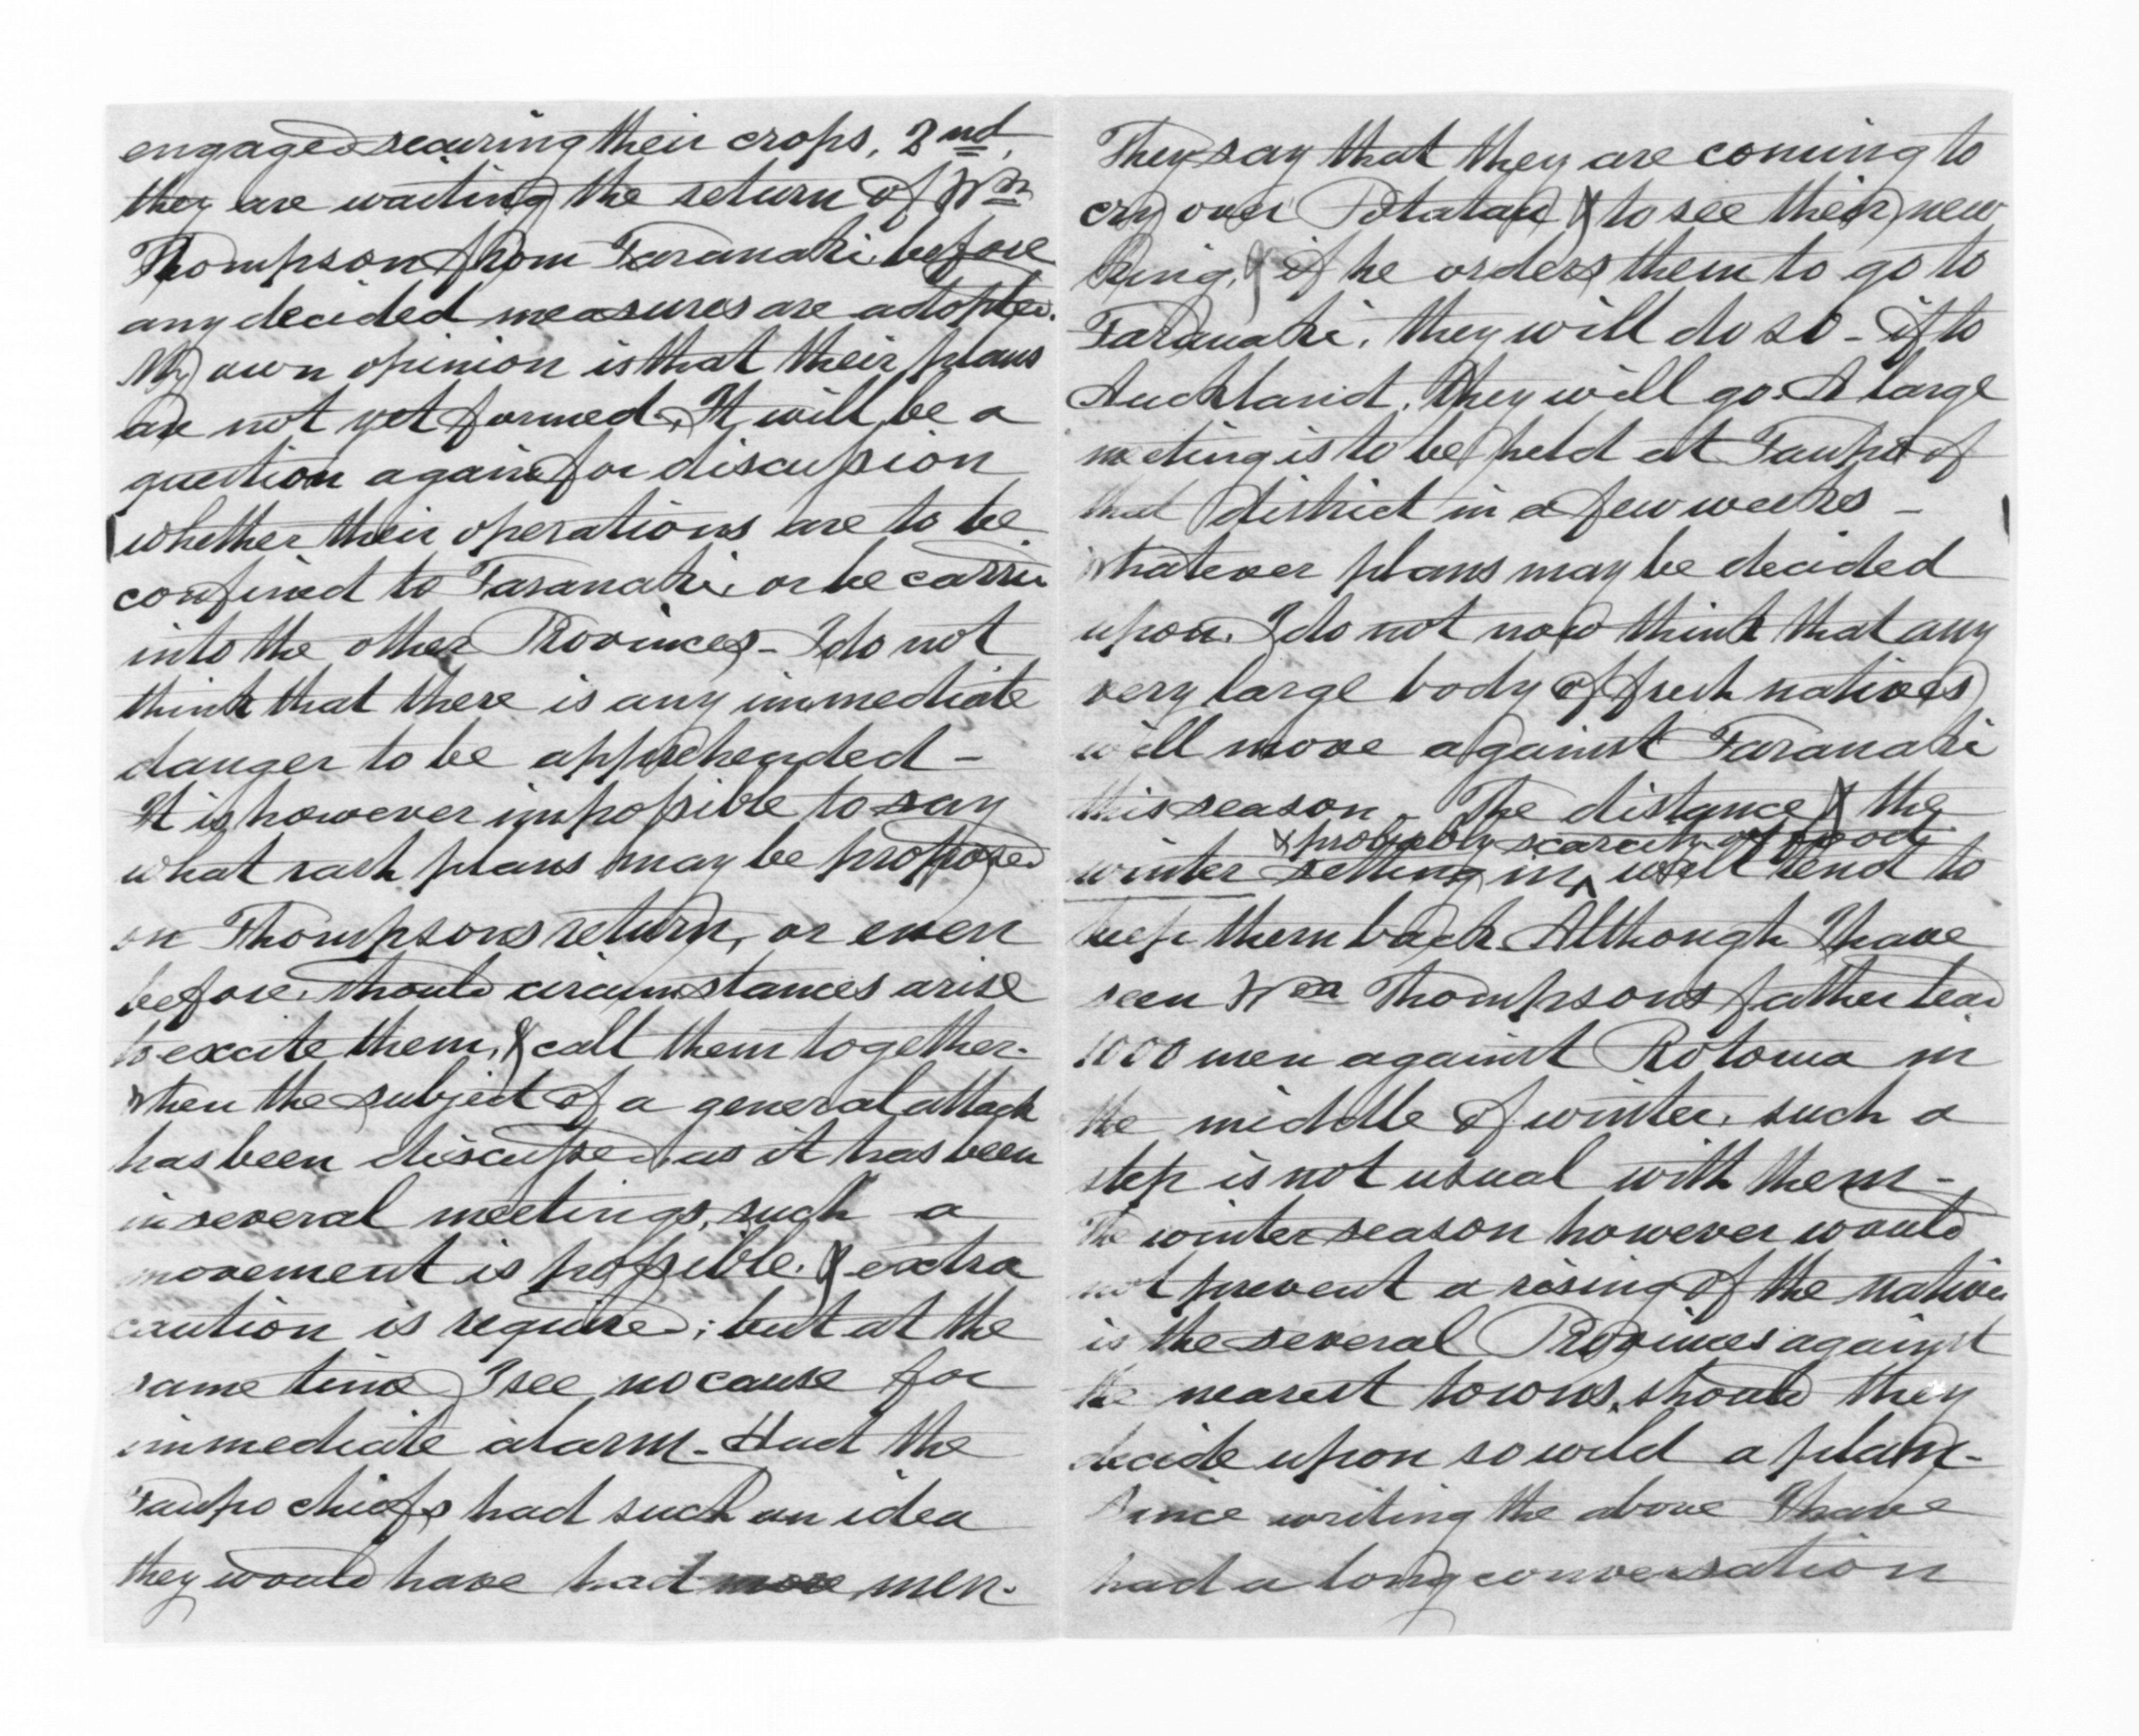 engaged securing their crops, 2nd,
they are waiting the return of Wm
Thompson from Taranaki before
any decided measures are adopted.
My own opinion is that their plans
are not yet formed. It will be a
question again for discussion
whether their operations are to be
confined to Taranaki, or be carried
into the other Provinces - I do not
think that there is any immediate
danger to be apprehended -
It is however impossible to say
what rash plans may be proposed
on Thompsons return, or even
before, should circumstances arise
to excite them, & call them together.
When the subject of a general attack
has been discussed, as it has been
in several meetings, such a
movement is possible, & extra
caution is required; but at the
same time I see no cause for
immediate alarm - Had the
Taupo chiefs had such an idea
they would have had more men.
They say that they are coming to
cry over Potatau & to see their new
King, & if he orders them to go to
Taranaki, they will do so - if to
Auckland, they will go. A large
meeting is to be held at Taupo of
that district in a few weeks -
Whatever plans may be decided
upon, I do not now think that any
very large body of fresh natives
will move against Taranaki
this season - The distance & the
& probably scarcity of food
winter setting in, ^ will tend to
keep them back. Although I have
seen Wm Thompsons father lead
1000 men against Rotorua in
the middle of winter, such a
step is not usual with them -
The winter season however would
not prevent a rising of the natives
in the several Provinces against
the nearest towns, should they
decide upon so wild a plan -
Since writing the above I have
had a long conversation